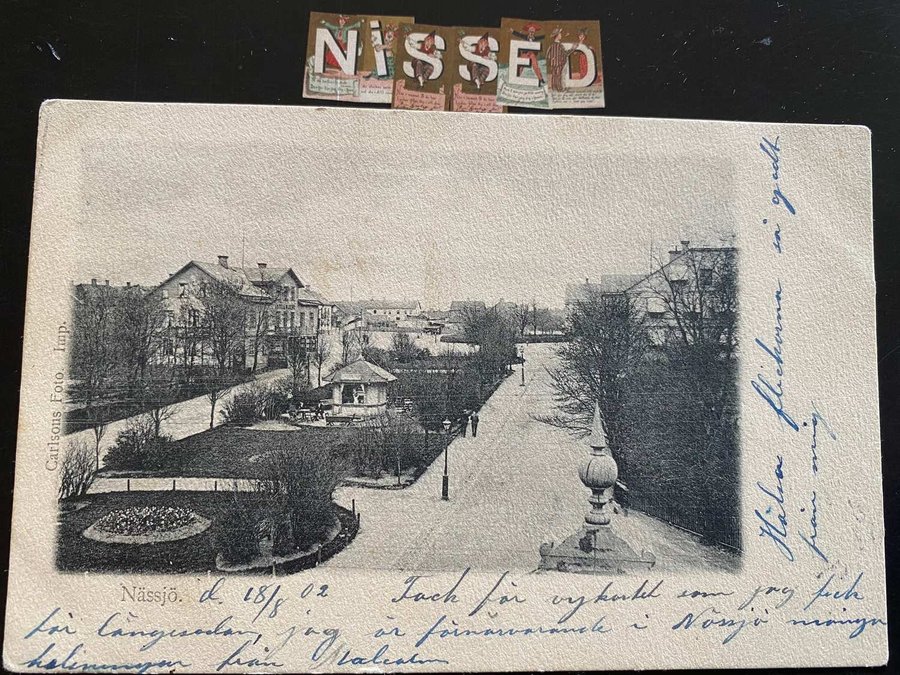 NiSSED
Carlsons Foto. Imp.
Nässjö. d. 18/8 02 Tack för vykortet som jag fick
för längesedan, jag är förnärvarande i Nässjö många
helsningar från Malcolm
Hälsa flickorna så godt
från mig